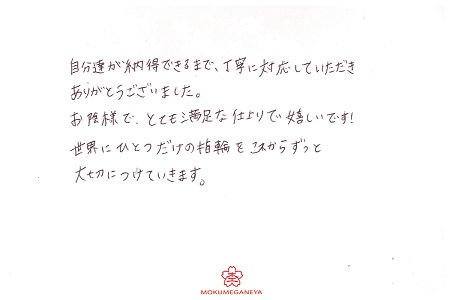 自分達が納得できるまで、丁寧に対応していただき
ありがとうございました。
お陰様で、とても満足な仕上りで嬉しいです!
世界にひとつだけの指輪をこれからずっと
大切につけていきます。
MOKUMEGANEYA